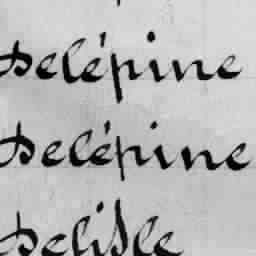 Delépine
Delépine
Delisle